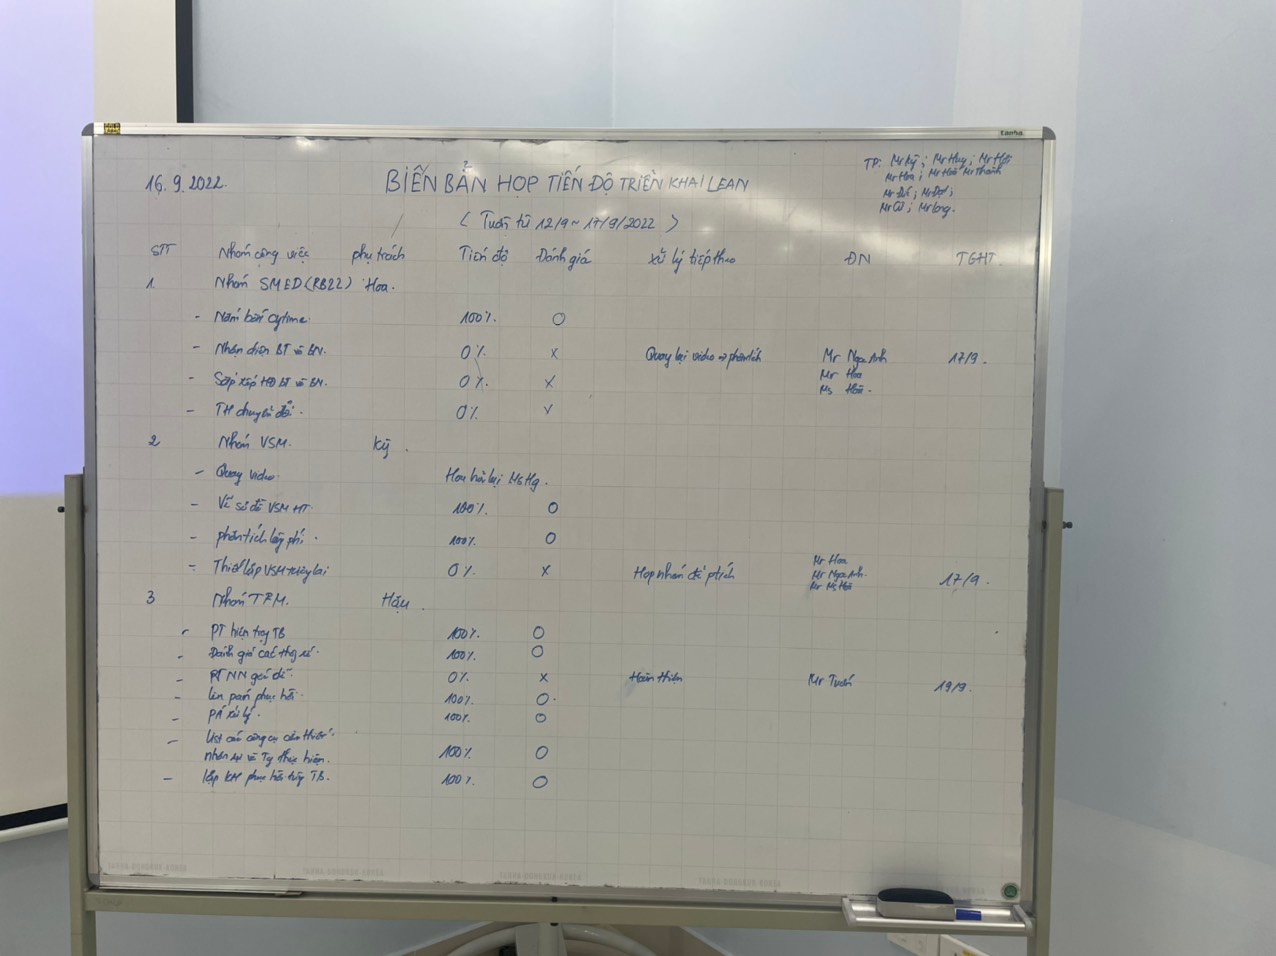 tanha
16.9.2022.
BIÊN BẢN HỌP TIẾN ĐỘ TRIỂN KHAI LEAN
TP: Mr Kỹ; Mr Huy; Mr
Mr Hoa; Mr Thành
Mr Đợi;
Mr Cừ; Mr long.
( Tuần từ 12/9 ~ 17/9/2022 )
STT Nhóm công việc phụ trách Tiến độ Đánh giá xử lý tiếp theo ĐN TGHT.
1. Nhóm SMED (RB22) Hoa.
- Nắm bắt cytime. 100% O
- Nhận diện BT và BN. 0% X Quay lại video → phân tích Mr Ngọc Anh 17/9.
Mr Hoa
- Sắp xếp HĐ BT và BN. 0% X Ms
- TH chuyển đổi. 0% X
2 Nhóm VSM. Kỹ.
- Quay video. Ms Hg.
- Vẽ sơ đồ VSM HT. 100% O
- phân tích lãng phí. 100% O
Mr Hoa
- Thiết lập VSM tương lai 0% X Họp nhóm để ptích Mr Ngọc Anh. 17/9.
3 Nhóm TPM. Hậu.
- PT hiện trạng TB 100% O
- Đánh giá các 100% O
- PT NN gốc dễ 0% X Hoàn thiện Mr Tuấn 19/9.
- lên pán phục hồi. 100% O
- PÁ xử lý. 100% O
- list các công cụ cần thiết.
nhân sự và Tg thực hiện. 100% O
- lập KH phục hồi TB. 100% O